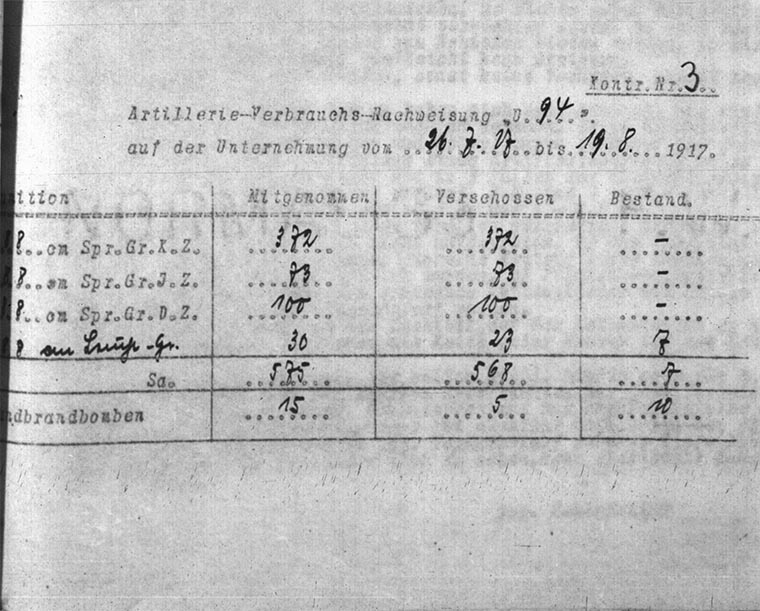 Kontr.Nr. 3..
Artillerie-Verbrauchs-Nachweisung „U. 94.".
auf der Unternehmung vom ..26. 7. 17.. bis .19. 8. .... 1917.
ition Mitgenommen Verschossen Bestand.
8.8..cm Spr.Gr.K.Z. 372 372 -
8.8..cm Spr.Gr.J.Z. 73 73 -
8.8..cm Spr.Gr.D.Z. 100 100 -
8.8 cm -Gr. 30 23 7
Sa. 575 568 7
ndbrandbomben 15 5 10